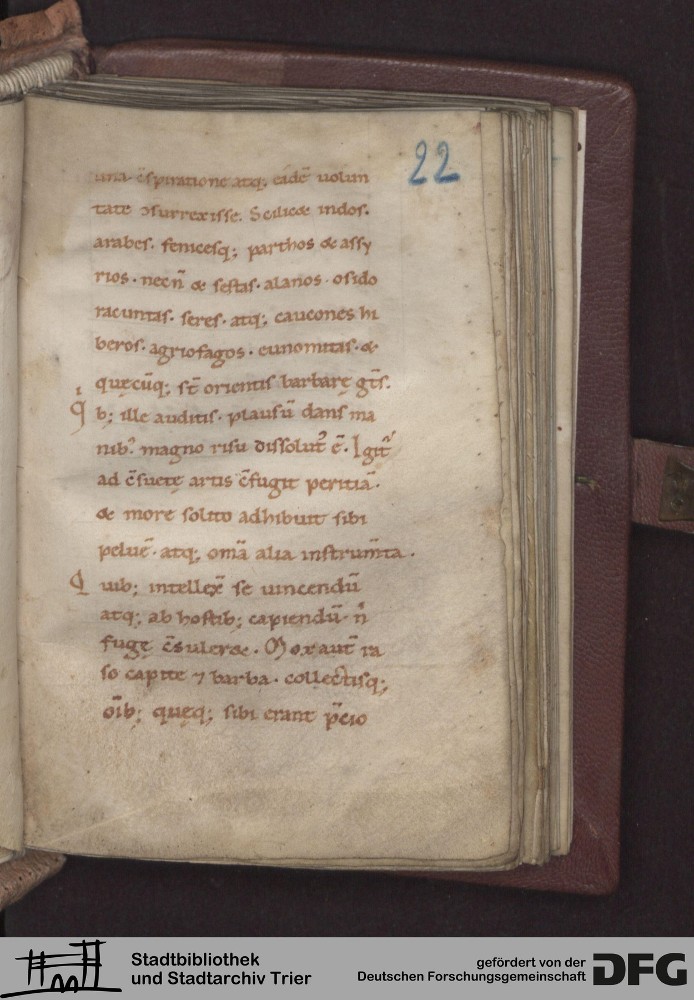 22
una c̄spiratione atq; eadē uolun
tate ↄsurrexisse. Scilicæ indos.
arabes. fenicesq; parthos & assy
rios. necn̄ & sestas. alanos. osido
racuntas. seres. atq; caucones hi
beros. agriofagos. eunomitas. &
quęcūq; st̄ orientis barbarę gt̄s.
q̇b; ille auditis. plausū dans ma
nib᾽ magno risu dissolut᾽ ē. Igit᾽
ad c̄suetę artis c̄fugit peritiā.
& more solito adhibuit sibi
peluē. atq; om̄a alia instrum̄ta.
Quib; intellex̄ se uincendū
atq; ab hostib; capiendū. n̄
fugę c̄suleræ. Mox aut̄ ra
so capite ⁊ barba. collectisq;
om̄ib; quęq; sibi erant p̄cio
Stadtbibliothek
und Stadtarchiv Trier
gefördert von der
Deutschen Forschungsgemeinschaft
DFG